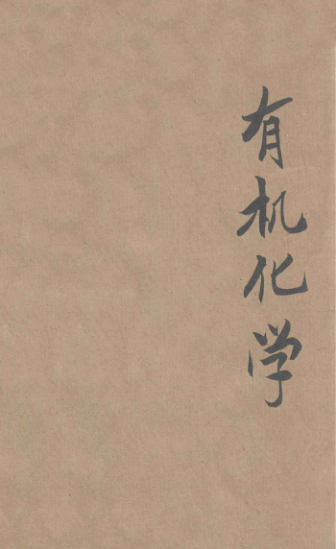 有机化学